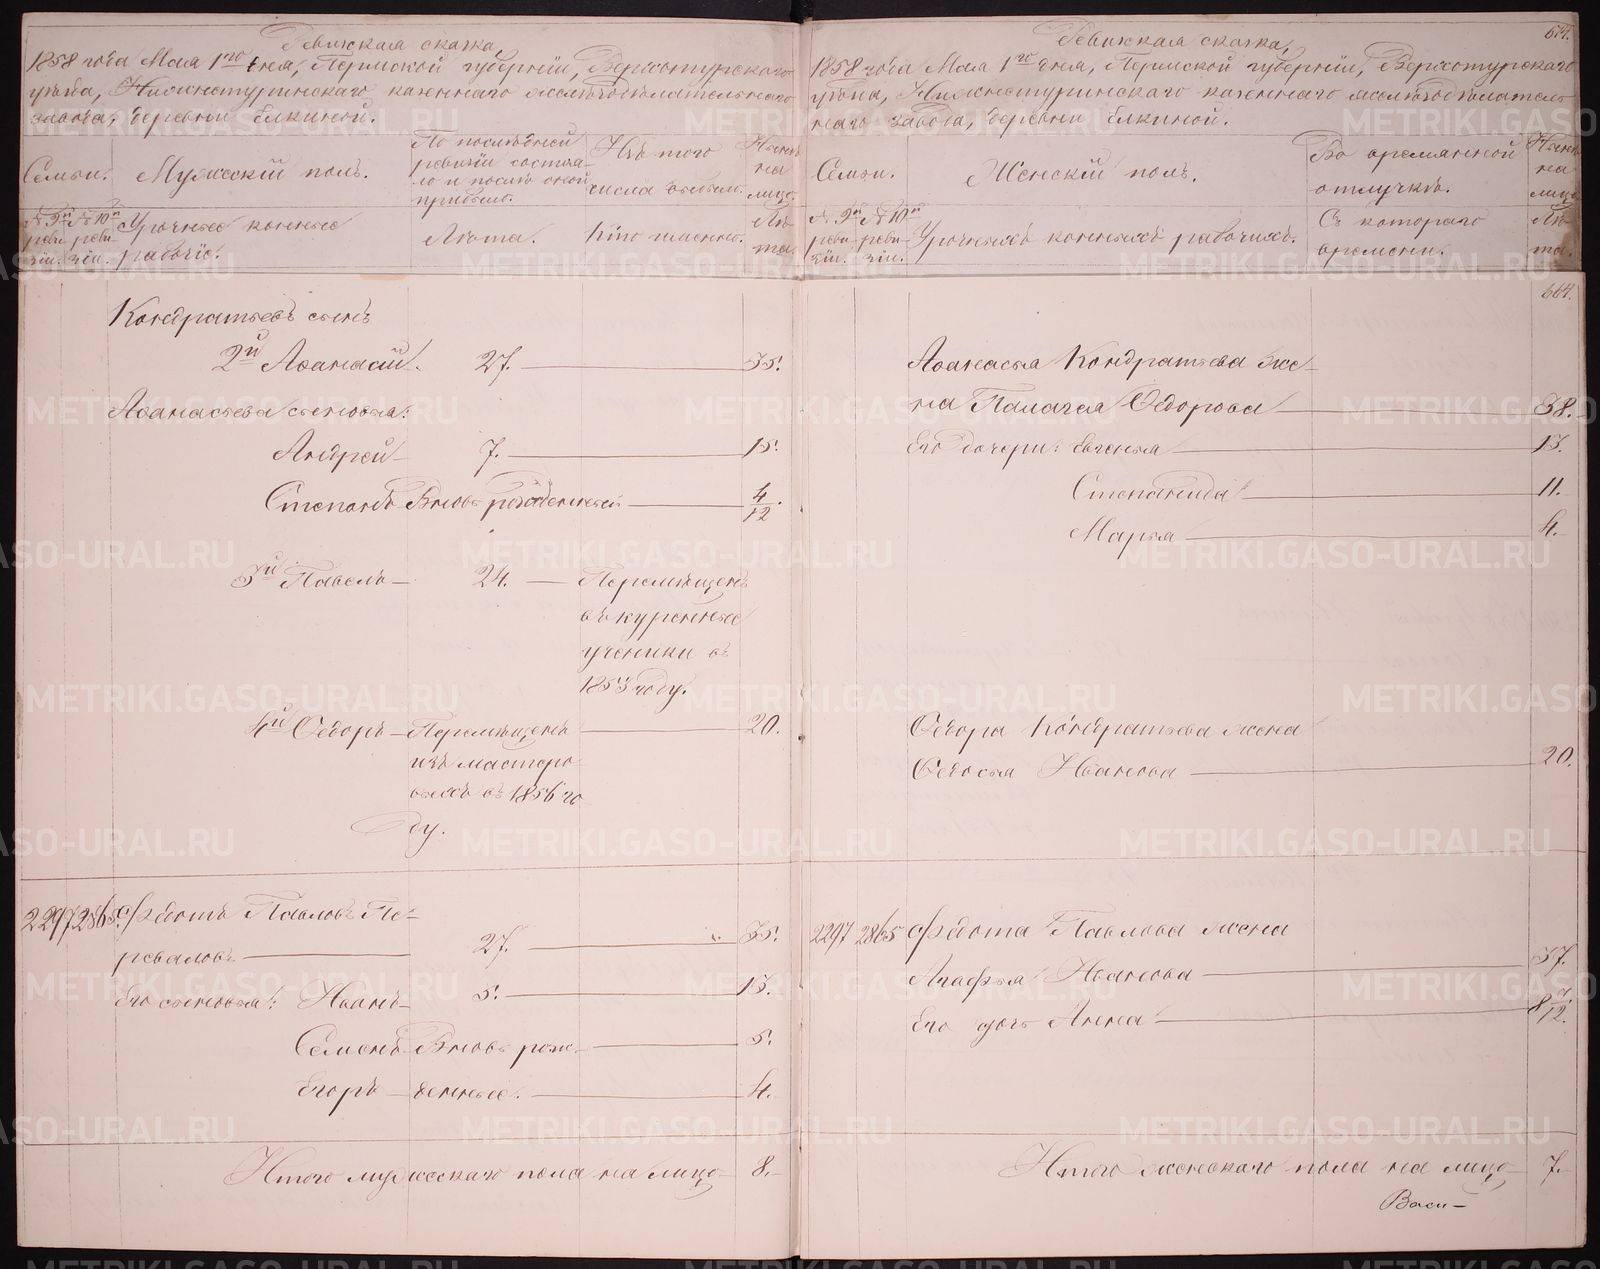 Ревижская сказка,
1858 года Мая 1го дня, Пермской губернiи, Верхотурскаго
уѣзда, Нижнетуринскаго казеннаго желѣзодѣлательнаго
завода, деревни Елкиной.
Семьи.
Мужескiй полъ.
По послѣдней
ревизiи состоя-
ло и послѣ оной
прибыло.
Изъ того
числа выбыло.
Нынѣ
на
лицо.
№ 9й
реви-
зiи.
№ 10й
реви-
зiи.
Урочные конные
рабочiе.
Лѣта.
Кто именно.
Лѣ-
та.
Кондратьевъ сынъ
2й Аѳанасiй.
27.
35.
Аѳанасьевы сыновья:
Андрей
7.
15.
Степанъ Вновь рожденный
4/12.
3й Павелъ
24.
Перемѣщенъ
въ куренные
ученики въ
1853 году.
4й Ѳедоръ
Перемѣщенъ
изъ мастеро
выхъ въ 1856 го
ду.
20.
2297 2865. Ѳедотъ Павловъ Пе-
реваловъ
27.
35.
Его сыновья: Иванъ
5.
13.
Семенъ Вновь рож-
5.
Егоръ денные.
4.
Итого мужескаго пола на лицо
8.
Ревижская сказка,
614.
1858 года Мая 1го дня, Пермской губернiи, Верхотурскаго
уѣзда, Нижнетуринскаго казеннаго желѣзодѣлатель
наго завода, деревни Елкиной.
Семьи.
Женскiй полъ.
Во временной
отлучкѣ.
Нынѣ
на
лицо.
№ 9й
реви-
зiи.
№ 10й
реви-
зiи.
Урочныхъ конныхъ рабочихъ.
Съ котораго
времени.
Лѣ-
та.
614.
Аѳанасья Кондратьева же-
на Палагея Ѳедорова
38.
Его дочери: Евгенья
13.
Степанида
11.
Марья
4.
Ѳедора Кондратьева жена
Ѳедосья Иванова
20.
2297 2865 Ѳедота Павлова жена
Агафья Иванова
37.
Его дочь Анна
Итого женскаго пола на лицо
7.
Васи-
METRIKI.GASO-URAL.RU